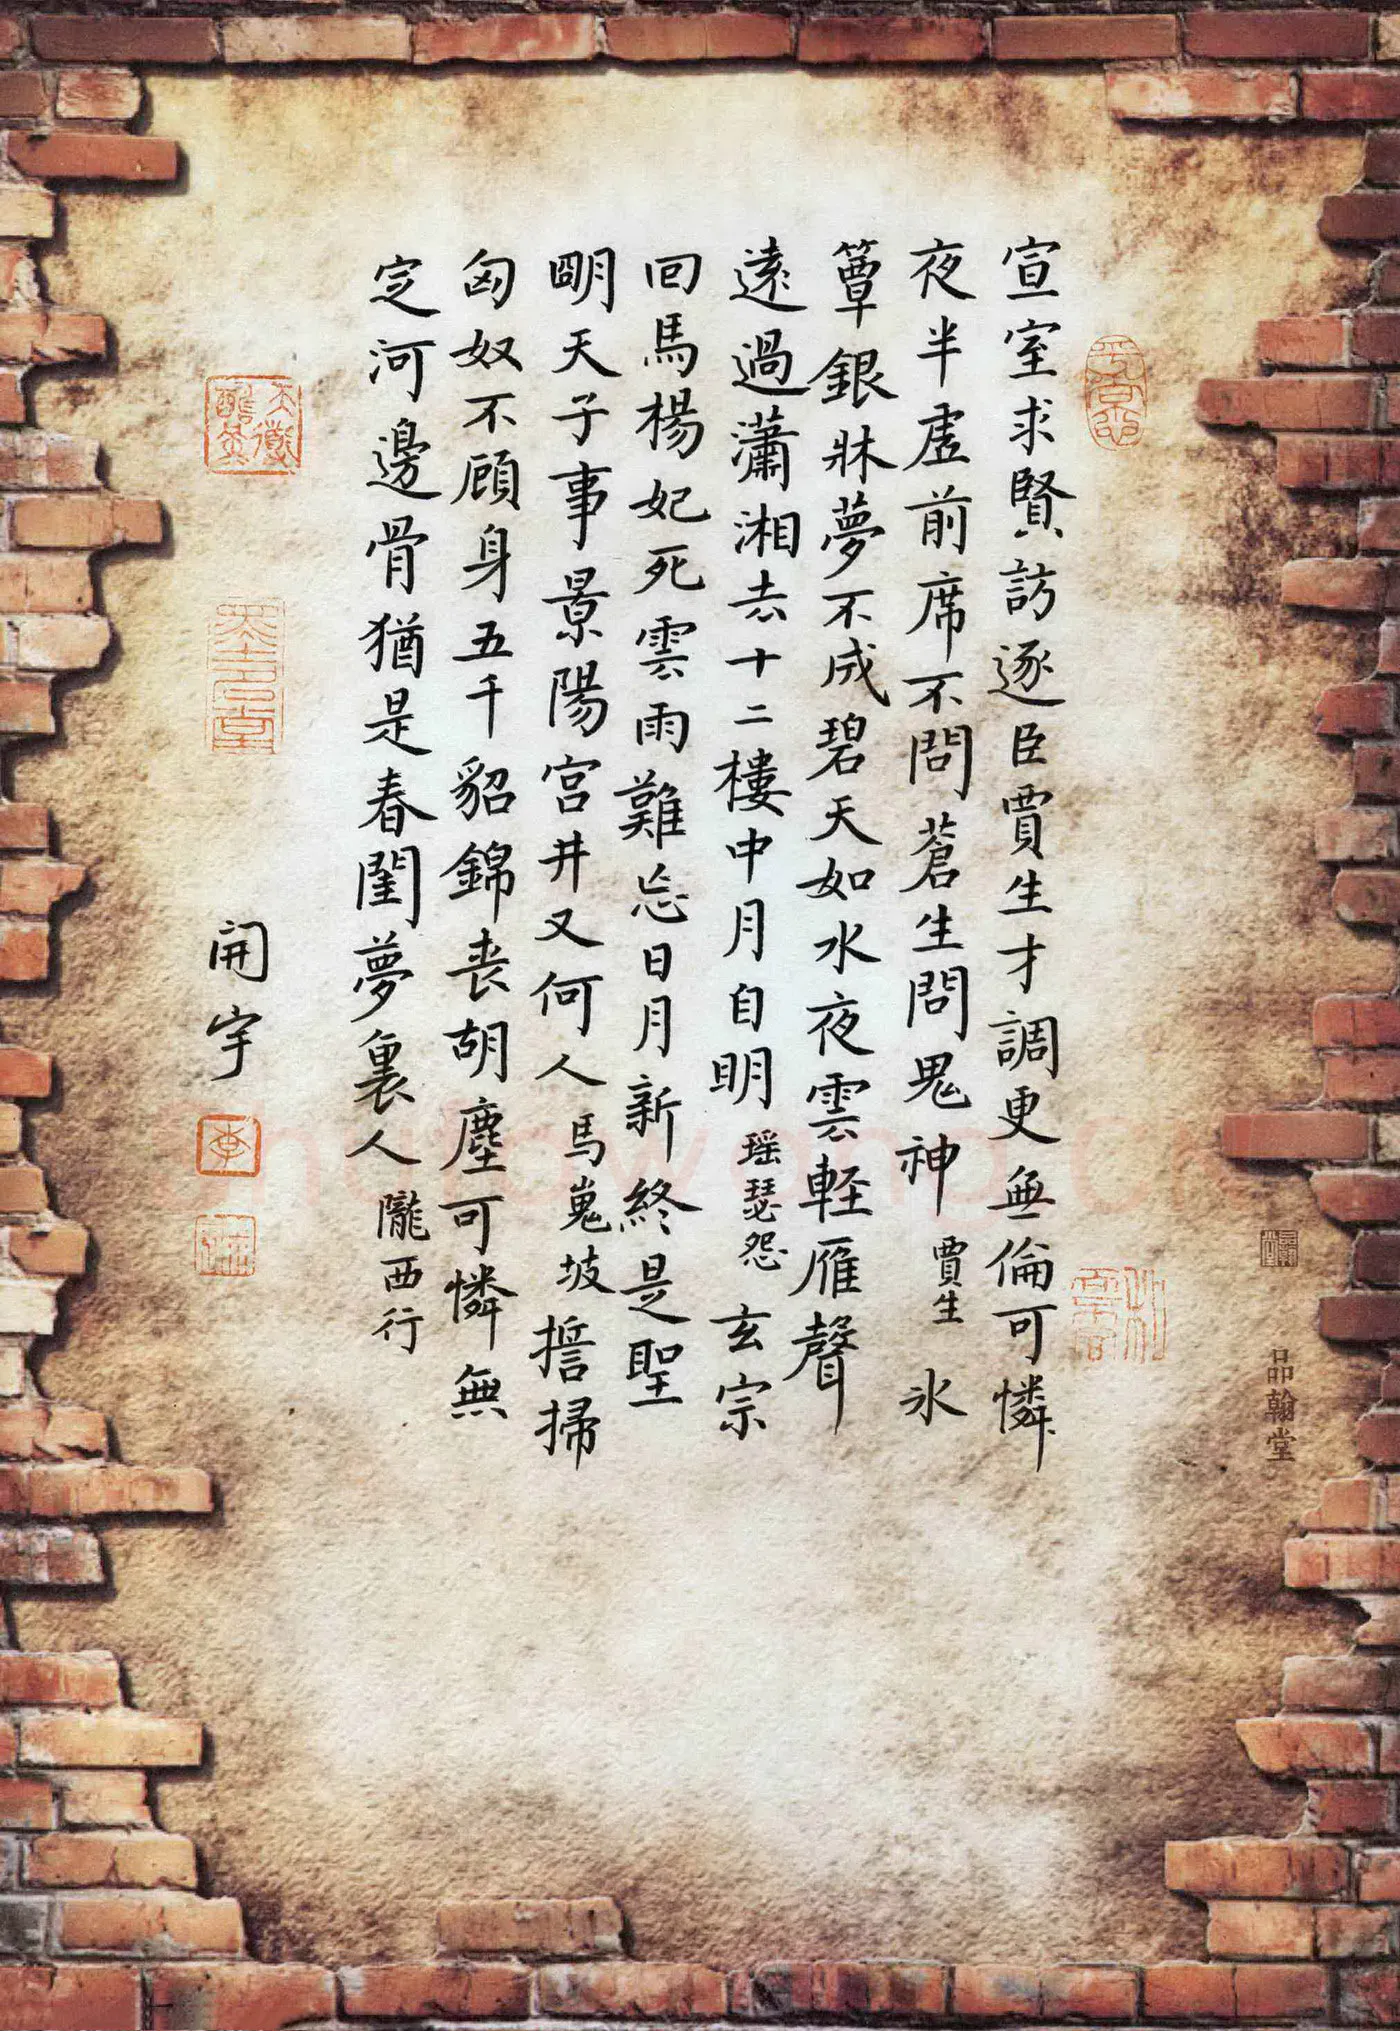 宣室求賢訪逐臣賈生才調更無倫可憐
夜半虛前席不問蒼生問鬼神 賈生 氷
簟銀牀夢不成碧天如水夜雲輕雁聲
遠過瀟湘去十二樓中月自明 瑶瑟怨 玄宗
回馬楊妃死雲雨難忘日月新終是聖
明天子事景陽宮井又何人 馬嵬坡 誓掃
匈奴不顧身五千貂錦喪胡塵可憐無
定河邊骨猶是春閨夢裏人 隴西行
開宇
李
品翰堂